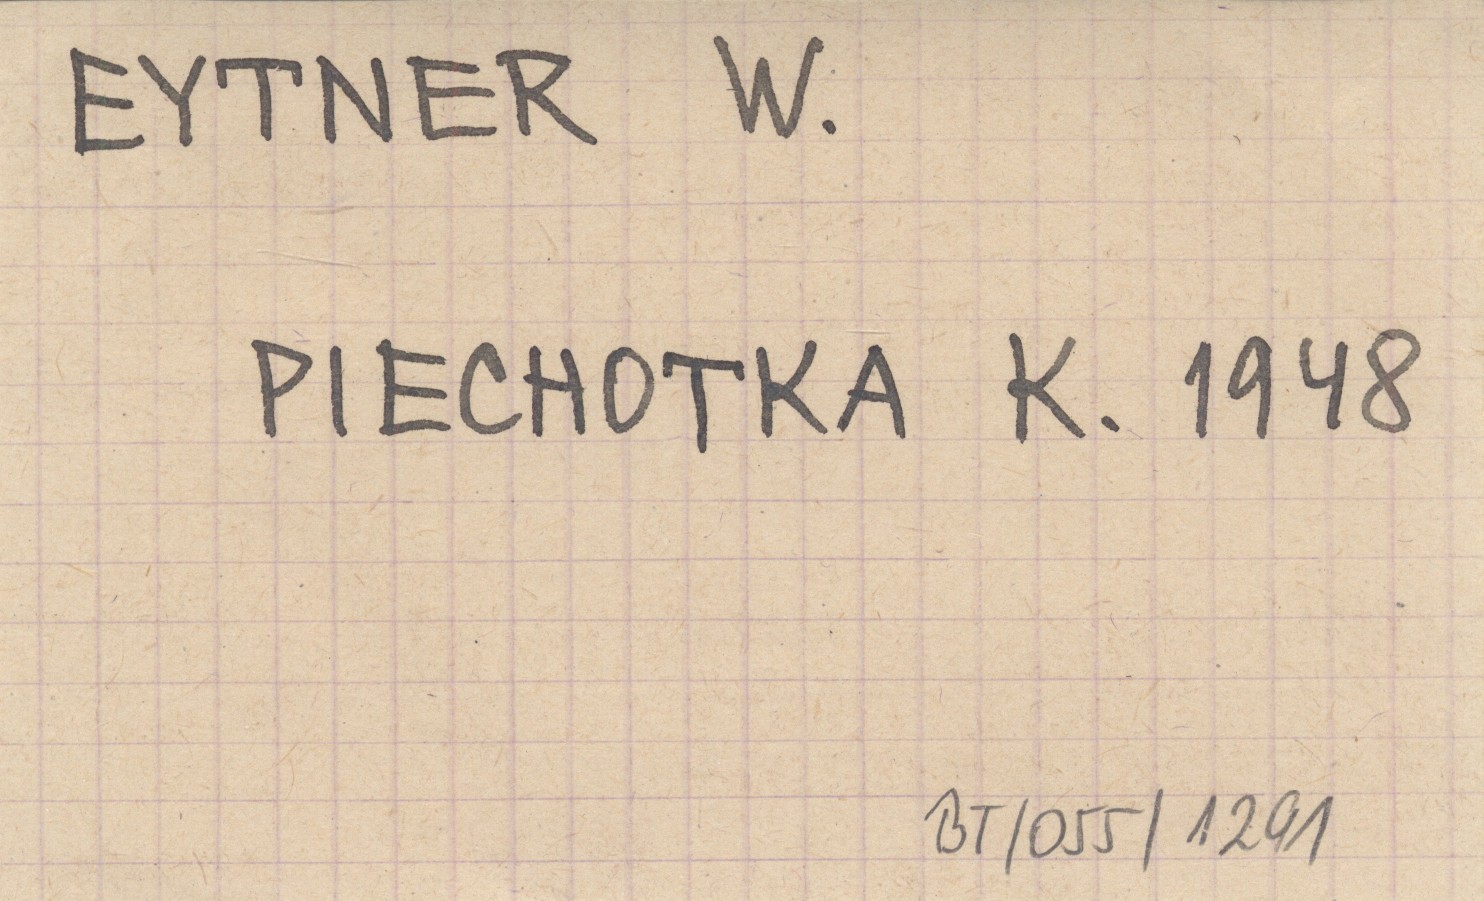 EYTNER W.
PIECHOTKA K. 1948
BT/055/1291